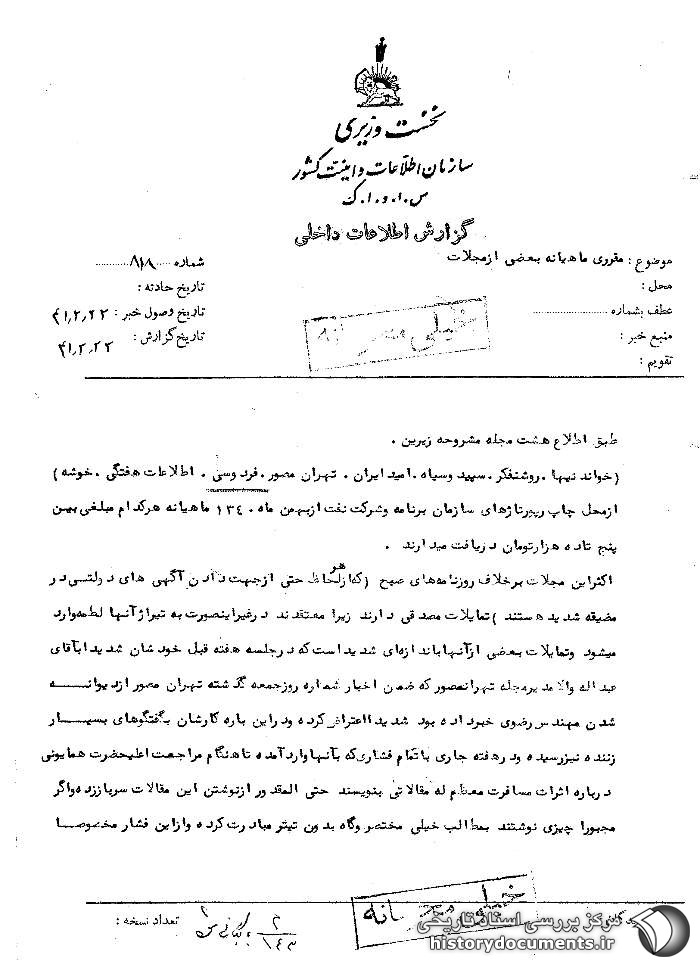 نخست وزیری
سازمان اطلاعات و امنیت کشور
س.ا.و.ا.ک
گزارش اطلاعات داخلی
موضوع : مقرری ماهیانه بعضی از مجلات
شماره ۸۱۸
محل :
تاریخ حادثه :
عطف بشماره
تاریخ وصول خبر : ۴۱٫۲٫۲۲
منبع خبر :
تاریخ گزارش : ۴۱٫۲٫۲۳
تقویم :
خیلی محرمانه
طبق اطلاع هشت مجله مشروحه زیرین .
(خواندنیها . روشنفکر . سپید وسیاه . امید ایران . تهران مصور . فردوسی . اطلاعات هفتگی . خوشه )
ازمحل چاپ رپورتاژهای سازمان برنامه وشرکت نفت ازبهمن ماه ۱۳٤۰ ماهیانه هرکدام مبلغی بین
پنج تاده هزارتومان دریافت میدارند .
اکثراین مجلات برخلاف روزنامه‌های صبح (که از هر لحاظ حتی ازجهت دادن آگهی های دولتی در
مضیقه شدید هستند ) تمایلات مصدقی دارند زیرا معتقدند درغیراینصورت به تیراژ آنها لطمه وارد
میشود وتمایلات بعضی ازآنها باندازه‌ای شدید است که درجلسه هفته قبل خودشان شدیدا بآقای
عبداله والا مدیرمجله تهرانمصور که ضمن اخبار شماره روزجمعه گذشته تهران مصور ازدیوانه
شدن مهندس رضوی خبرداده بود شدیدا اعتراض کرده ودراین باره کارشان بگفتگوهای بسیار
زننده نیزرسیده ودرهفته جاری باتمام فشاری که بآنها وارد آمده تاهنگام مراجعت اعلیحضرت همایونی
درباره اثرات مسافرت معظم له مقالاتی بنویسند حتی المقدور ازنوشتن این مقالات سرباززده واگر
مجبورا چیزی نوشتند بمطالب خیلی مختصر وگاه بدون تیتر مبادرت کرده وازاین فشار مخصوصا
خیلی محرمانه
تعداد نسخه :
۲
۱۴۳
مرکز بررسی اسناد تاریخی
historydocuments.ir